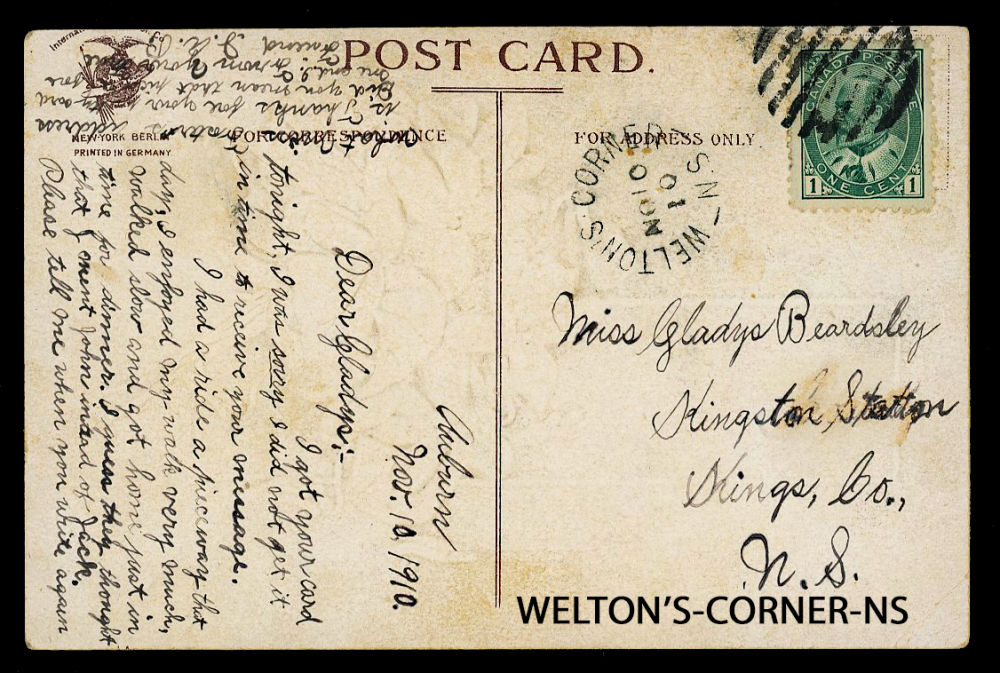 POST CARD.
NEW-YORK BERLIN
PRINTED IN GERMANY
FOR CORRESPONDENCE
FOR ADDRESS ONLY
CANADA POSTAGE
1 ONE CENT 1
WELTON'S-CORNER N.S
NO 10
10
Miss Gladys Beardsley
Kingston, Station
Kings, Co.,
N. S.
Auburn
Nov. 10, 1910.
Dear Gladys:-
I got your card
tonight, I was sorry I did not get it
in time to receive your message.
I had a ride a pieceway that
day, I enjoyed my walk very much,
walked slow and got home just in
time for dinner. I guess they thought
that I ment John instead of Jack.
Please tell me when you write again
what
address
Thanks for your
did you mean that
one and
Friend
WELTON'S-CORNER-NS